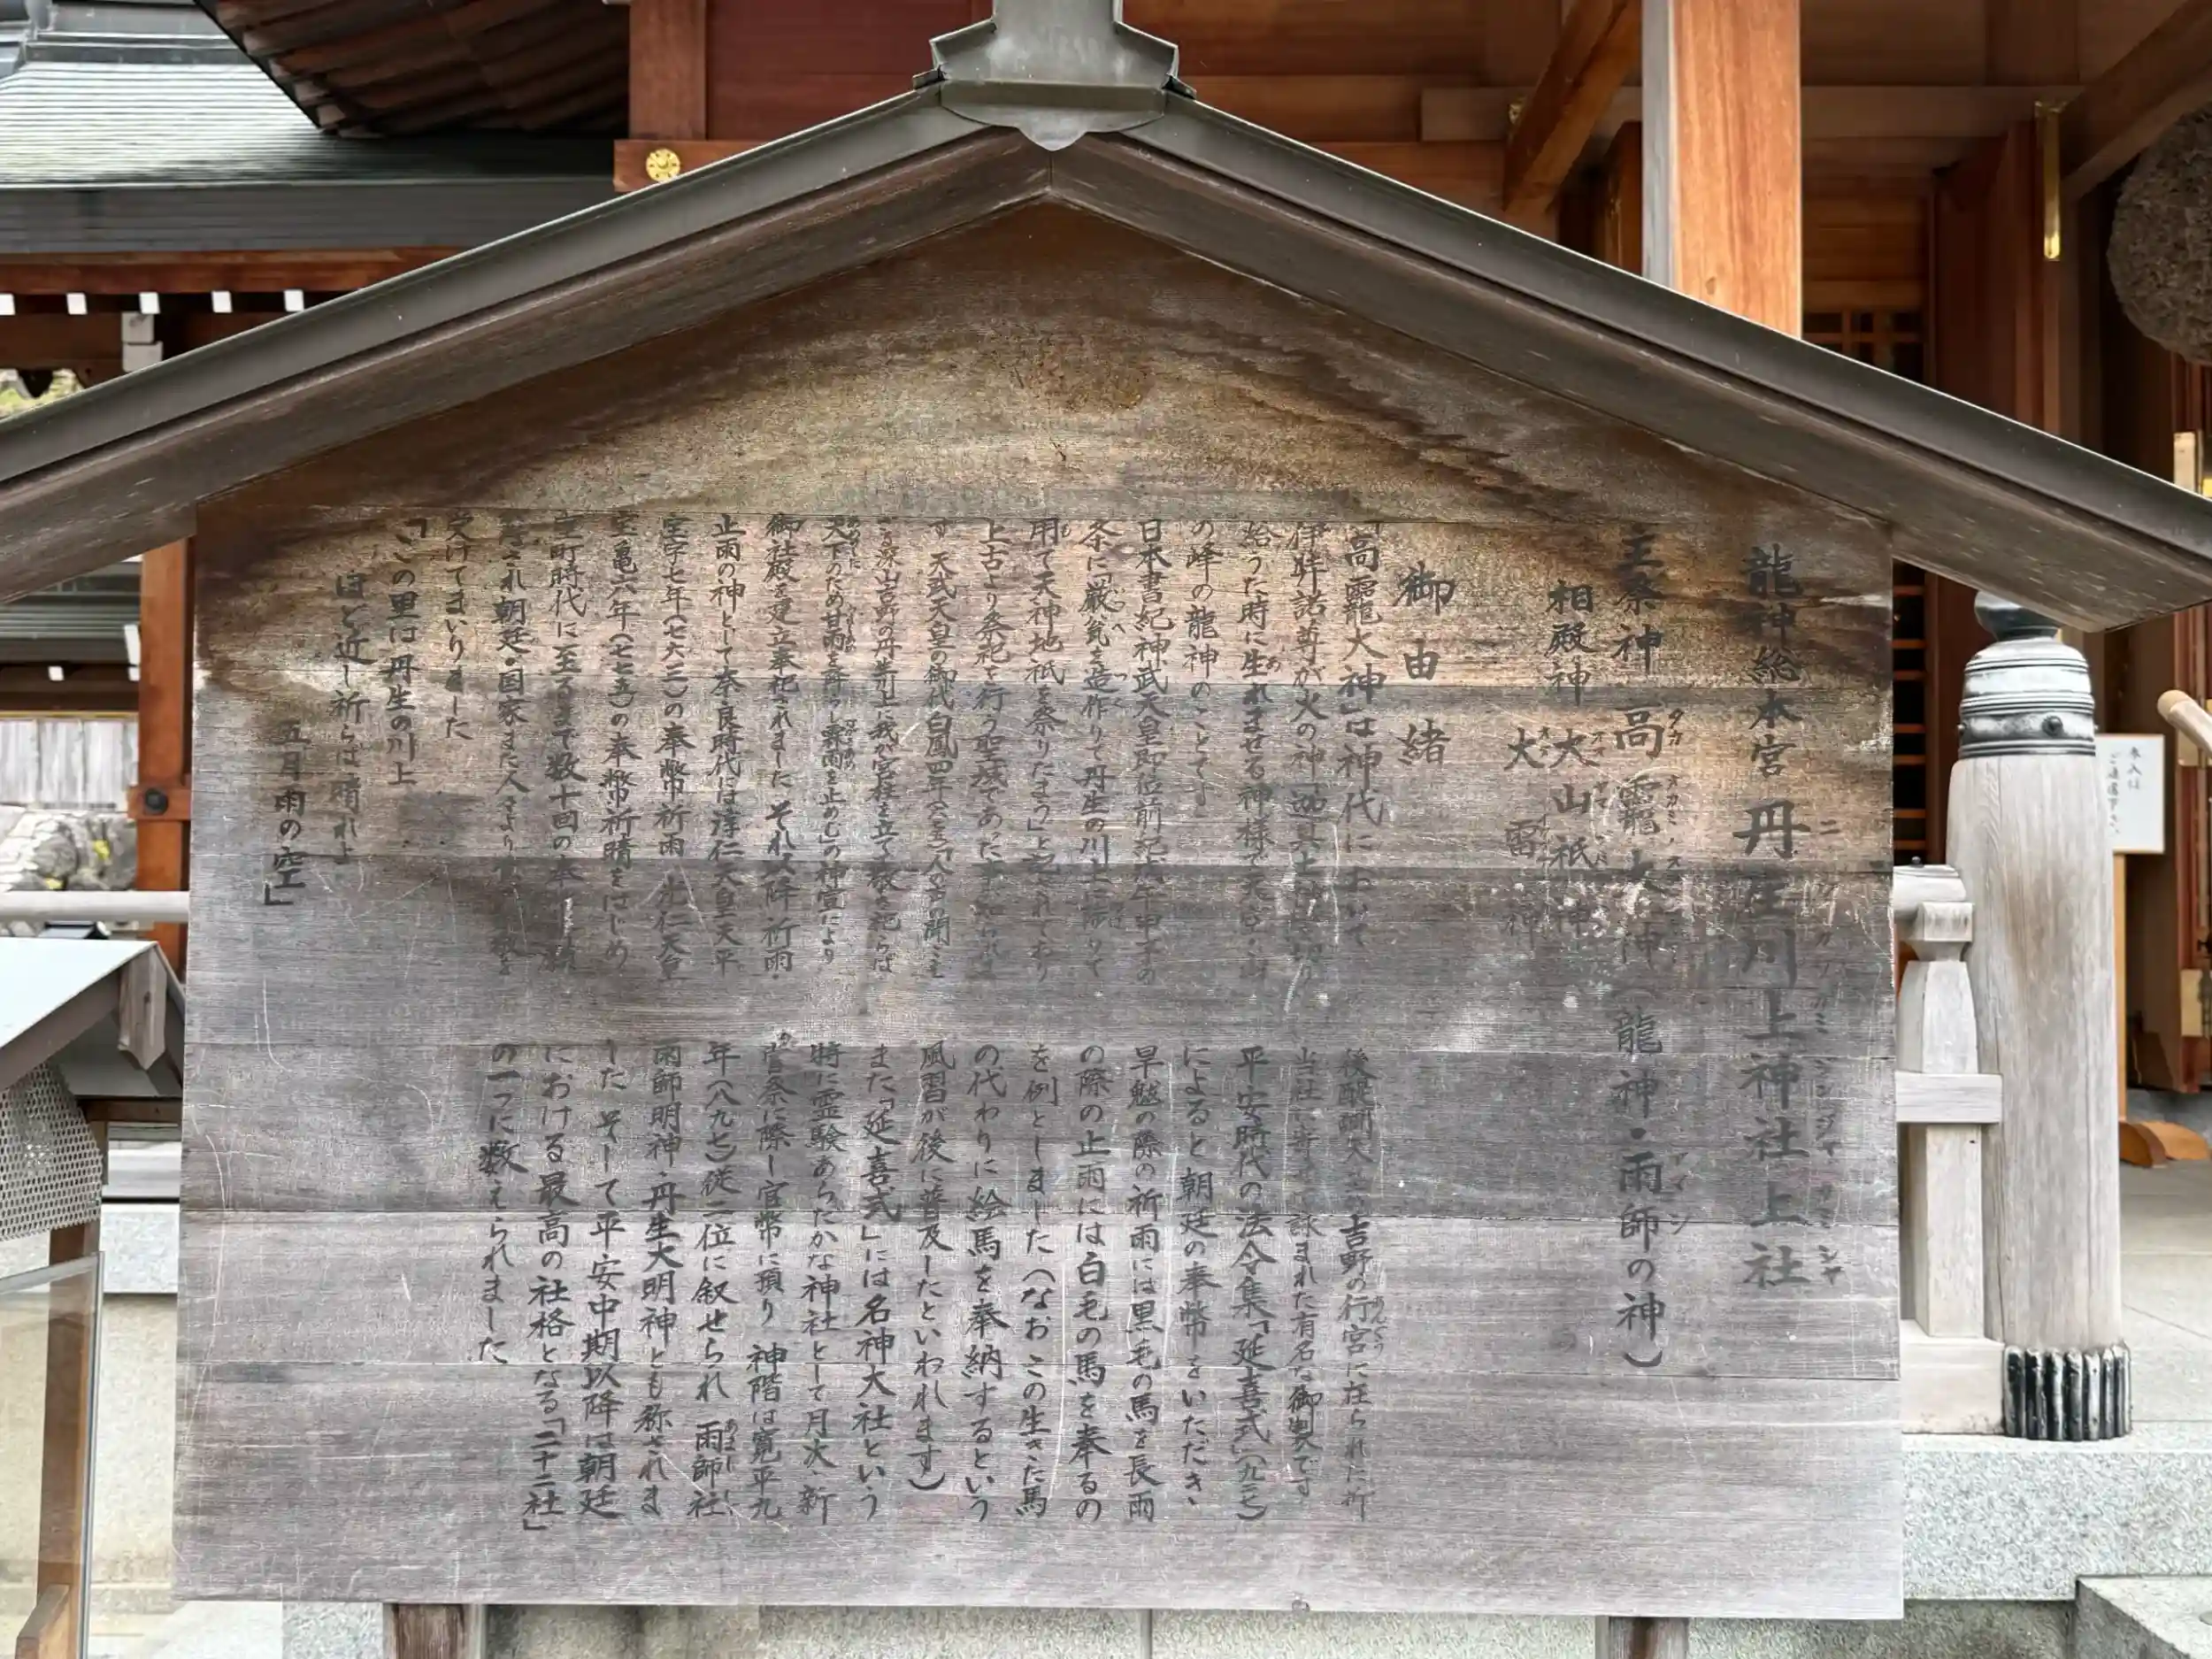 龍神総本宮 丹生川上神社上社
ニ カワカミ ジンジャ カミシャ
主祭神 高龗大神(龍神・雨師の神)
タカ オカミノ
相殿神 大山祇神
大雷神
御由緒
「高龗大神」は神代において
伊弉諾尊が火の神「迦具土
給うた時に生れませる神様で
の峰の龍神のことです
日本書紀神武天皇即位前紀戊午年
条に「厳瓮を造作りて丹生の川上に
用て天神地祇を祭りたまう」と記されており
上古より祭祀を行う聖域であった
す 天武天皇の御代白鳳四年
深山吉野の丹生川上に我が宮柱を立て敬を祀らば
天下のため甘雨を降らし霖雨を止めむ」の神宣により
御社殿を建立奉祀されました それ以降 祈雨・
止雨の神として奈良時代には淳仁天皇天平
宝字七年(七六三)の奉幣祈雨 光仁天皇
宝亀六年(七七五)の奉幣祈晴をはじめ
室町時代に至るまで数十回の奉
され朝廷・国家また人々より
受けてまいりました
「この里は丹生の川上
ほど近し祈らば晴れよ
五月雨の空」
後醍醐天皇 吉野の行宮に在られた折
当社に寄せて詠まれた有名な御製です
平安時代の法令集「延喜式」(九二七)
によると朝廷の奉幣をいただき、
旱魃の際の祈雨には黒毛の馬を長雨
の際の止雨には白毛の馬を奉るの
を例としました(なおこの生きた馬
の代わりに絵馬を奉納するという
風習が後に普及したといわれます)
また「延喜式」には名神大社という
特に霊験あらたかな神社として月次・新
嘗祭に際し官幣に預り 神階は寛平九
年(八九七)従二位に叙せられ 雨師社
雨師明神・丹生大明神とも称されま
した そして平安中期以降は朝廷
における最高の社格となる「二十二社」
の一つに数えられました